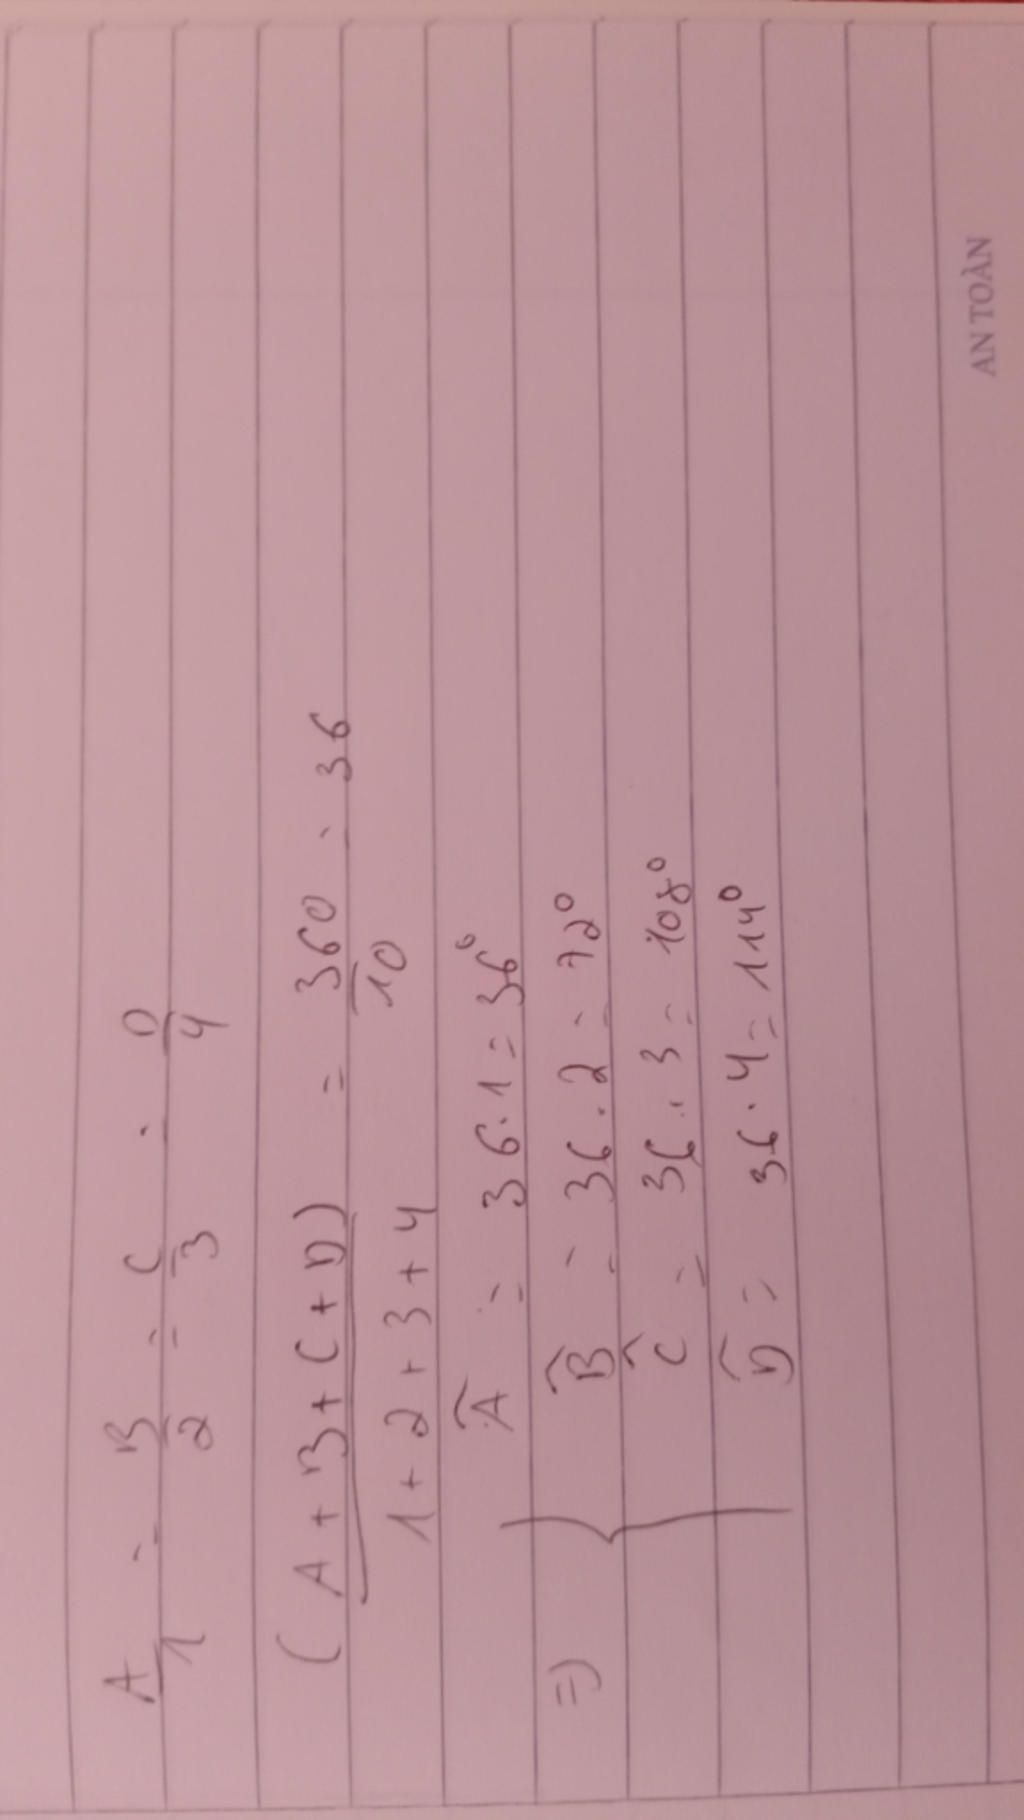 A/1 = B/2 = C/3 = D/4
(A + B + C + D) / 1 + 2 + 3 + 4 = 360/10 = 36
Â = 36 . 1 = 36°
=> { B̂ = 36 . 2 = 72°
Ĉ = 36 . 3 = 108°
D̂ = 36 . 4 = 114°
AN TOÀN